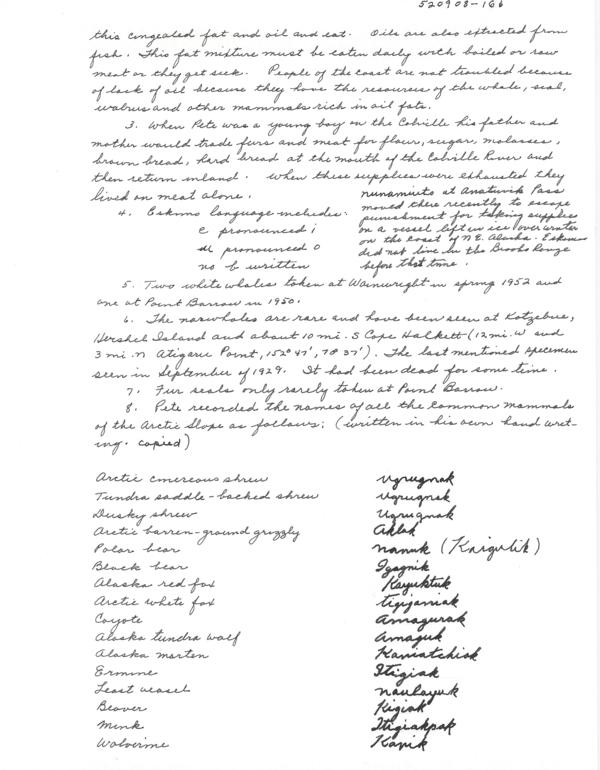 520903-166
this congealed fat and oil and eat. Oils are also extracted from
fish. This fat mixture must be eaten daily with boiled or raw
meat or they get sick. People of the coast are not troubled because
of lack of oil because they have the resources of the whale, seal,
walrus and other mammals rich in oil fats.
3. When Pete was a young boy on the Colville his father and
mother would trade furs and meat for flour, sugar, molasses,
brown bread, hard bread at the mouth of the Colville River and
then return inland. When these supplies were exhausted they
lived on meat alone.
4. Eskimo language includes:
e pronounced i
u pronounced o
no b written
nunamiuts at Anatuvik Pass
moved there recently to escape
punishment for taking supplies
on a vessel left in ice over winter
on the coast of N.E. Alaska. Eskimos
did not live in the Brooks Range
before that time.
5. Two white whales taken at Wainwright in spring 1952 and
one at Point Barrow in 1950.
6. The narwhales are rare and have been seen at Kotzebue,
Hershel Island and about 10 mi. S Cape Halkett (12 mi. W and
3 mi. N Atigaru Point, 152° 47', 70° 37'). The last mentioned specimen
seen in September of 1929. It had been dead for some time.
7. Fur seals only rarely taken at Point Barrow.
8. Pete recorded the names of all the common mammals
of the Arctic Slope as follows: (written in his own hand writ-
ing. copied)
Arctic cinereous shrew Ugrugnak
Tundra saddle-backed shrew Ugrugnak
Dusky shrew Ugrugnak
Arctic barren-ground grizzly Aklak
Polar bear nanuk (Knigulik)
Black bear Igagnik
Alaska red fox Kayuktuk
Arctic white fox tigiganiak
Coyote Amagurak
Alaska tundra wolf Amaguk
Alaska marten Kaviatchiak
Ermine Itigiak
Least weasel naulayuk
Beaver Kigiak
Mink Itigiakpak
Wolverine Kavik